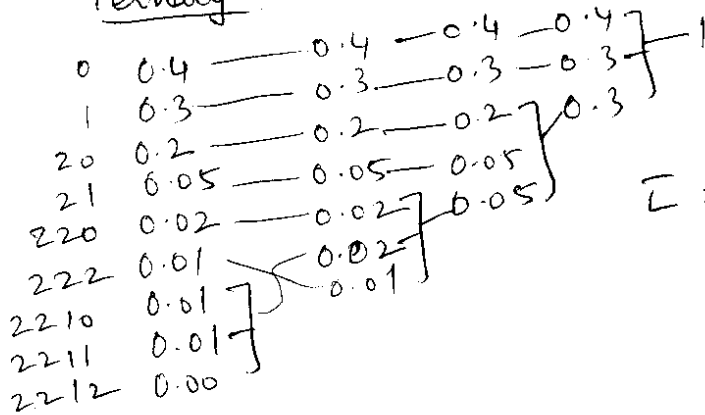 Ternary
0 0.4 0.4 0.4 0.4 1
1 0.3 0.3 0.3 0.3
20 0.2 0.2 0.2 0.3
21 0.05 0.05 0.05
220 0.02 0.02 0.05
222 0.01 0.02
2210 0.01 0.01
2211 0.01
2212 0.00
I